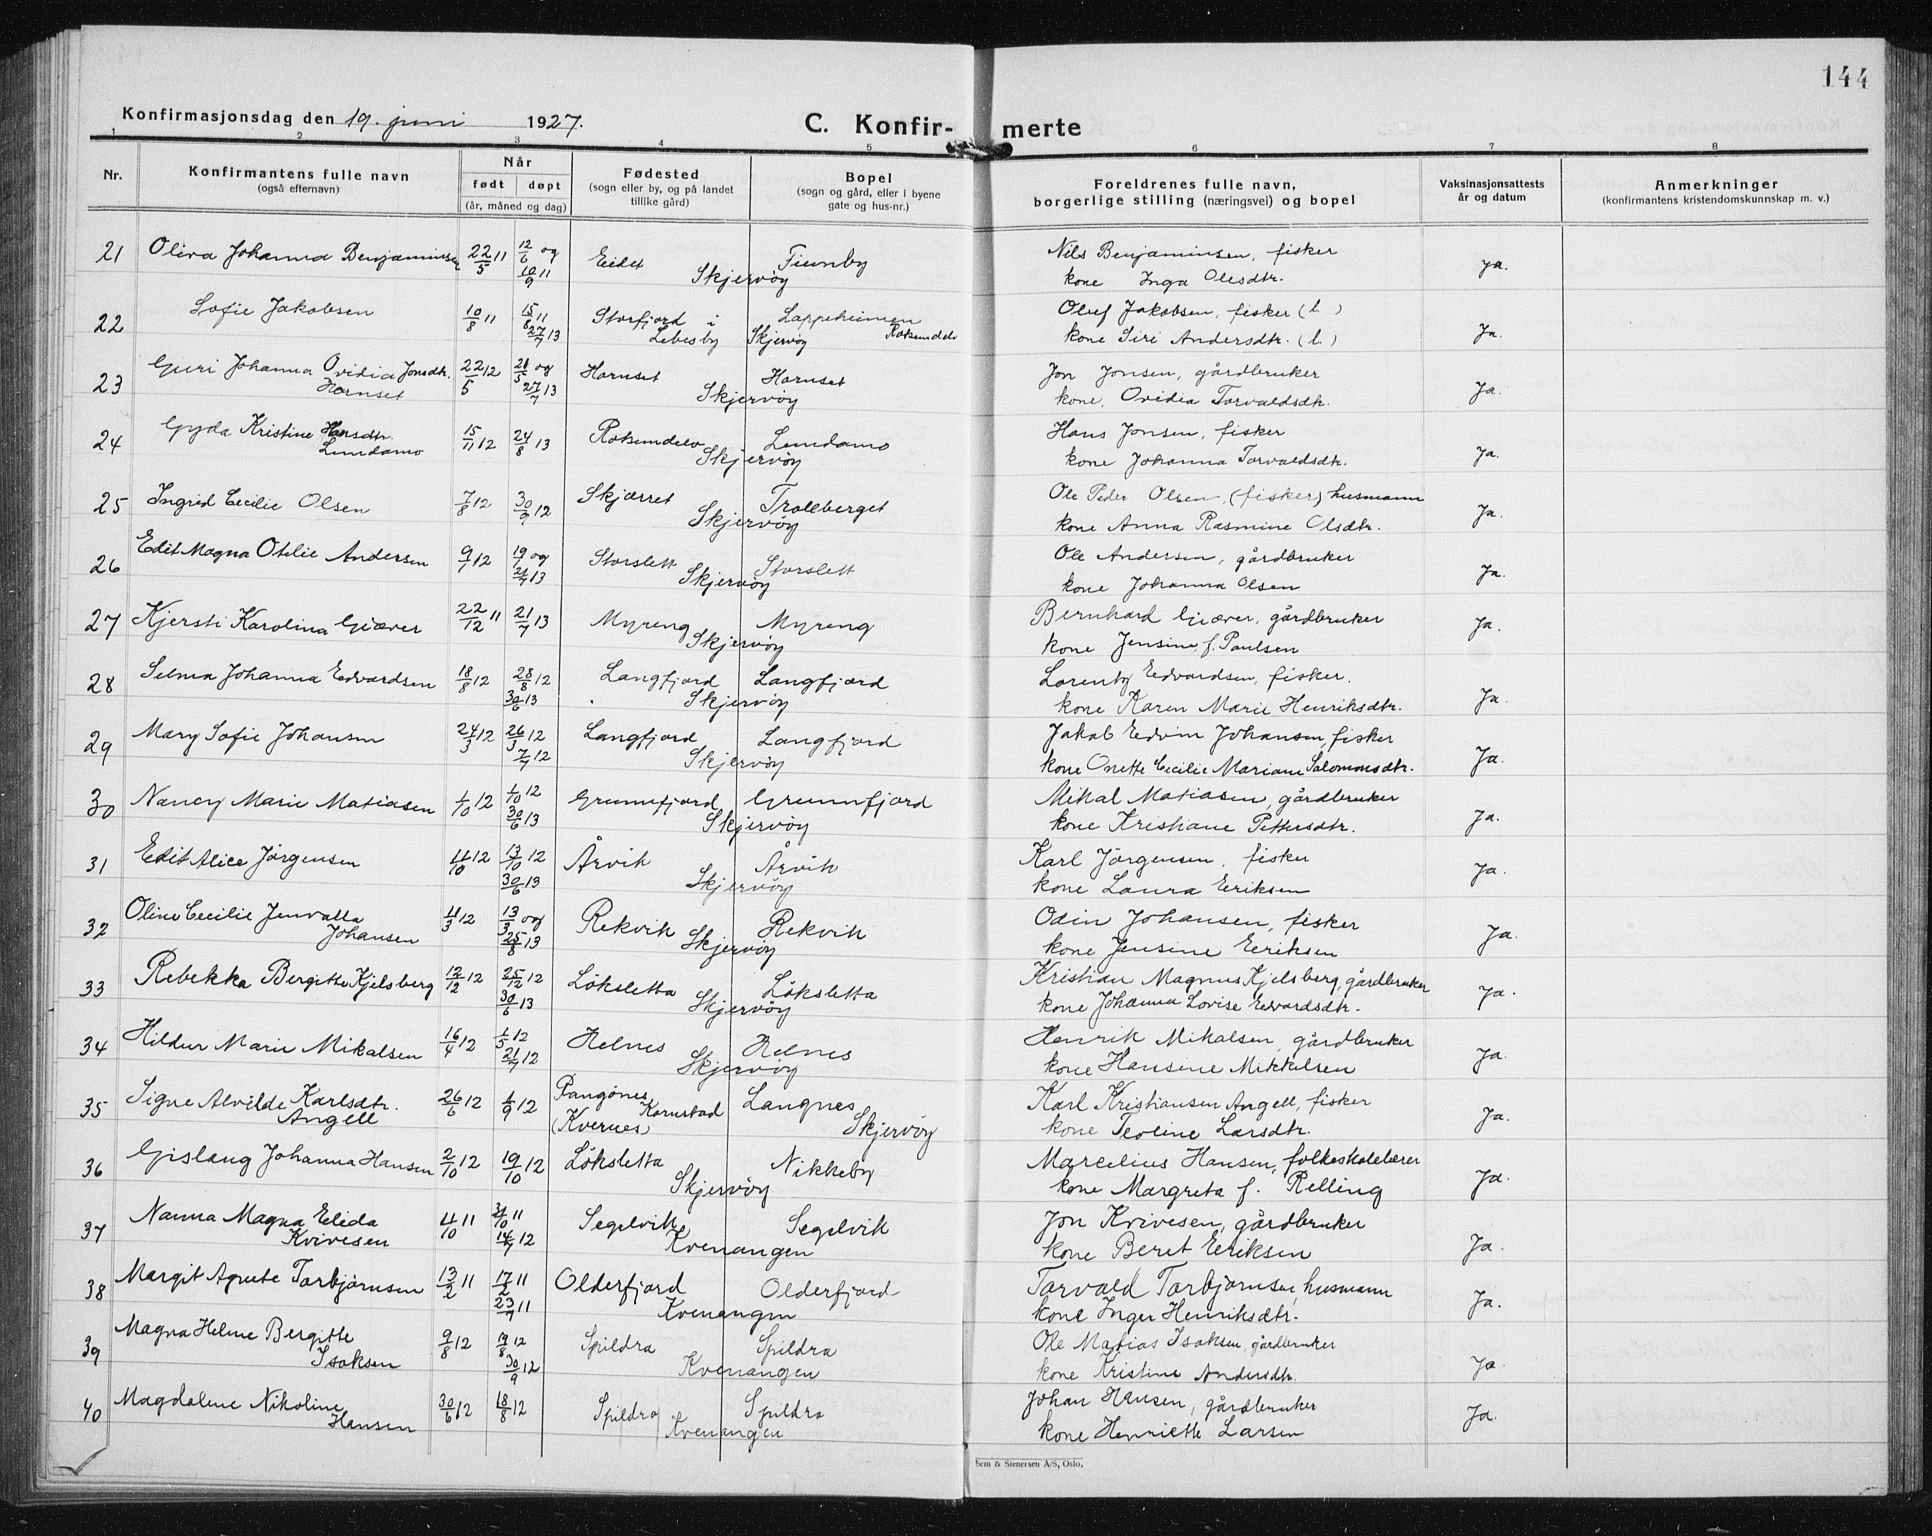 144
Konfirmasjonsdag den 19. juni 1927.
C. Konfirmerte
1 2 3 4 5 6 7 8
Nr.
Konfirmantens fulle navn
(også efternavn)
Når
født døpt
(år, måned og dag)
Fødested
(sogn eller by, og på landet
tillike gård)
Bopel
(sogn og gård, eller i byene
gate og hus-nr.)
Foreldrenes fulle navn,
borgerlige stilling (næringsvei) og bopel
Vaksinasjonsattests
år og datum
Anmerkninger
(konfirmantens kristendomskunnskap m. v.)
21 Oliva Johanna Benjaminsen 22/5 11 12/6 og Eidet Nils Benjaminsen, fisker ja.
10/9 11 Skjervöy kone Inga Olesdtr.
22 Sofie Jakobsen 10/8 11 15/8 11 Storfjord i Lappeheimen Oluf Jakobsen, fisker (l ) Ja.
27/7 13 Lebesby Skjervöy kone Siri Andersdtr. (l)
23 Guri Johanna Ovidia Jonsdtr. 22/5 12 og Hamset Hamset Jon Jonsen, gårdbruker Ja.
Hamset 27/7 13 Skjervöy kone. Ovidia Torvaldsdtr.
24 Gyda Kristine Hansdtr. 15/11 12 24/8 13 Lundamo Hans Jonsen, fisker Ja.
Lundamo Skjervöy kone Johanna Torvaldsdtr.
25 Ingrid Cecilie Olsen 7/8 12 30/9 12 Skjærret Trolleberget Ole Peder Olsen (fisker) husmann Ja.
Skjervöy kone Anna Rasmine Olsdtr.
26 Edit Magna Otilie Andersen 9/7 12 19/7 og Storslett Storslett Ole Andersen, gårdbruker Ja.
13 Skjervöy kone Johanna Olsen
27 Kjersti Karolina Giæver 22/12 11 21/7 13 Myreng Myreng Bernhard Giæver, gårdbruker Ja.
Skjervöy kone Jensine f. Paulsen
28 Selma Johanna Edvardsen 18/8 12 28/8 12 Langfjord Langfjord Lorentz Edvardsen, fisker. Ja.
30/6 13 Skjervöy kone Karen Marie Henriksdtr.
29 Mary Sofie Johansen 24/3 12 26/3 12 Langfjord Langfjord Jakob Edvin Johansen, fisker Ja.
7/7 12 Skjervöy kone Onette Cecilie Mariane Salomonsdtr.
30 Nancy Marie Matiasen 1/10 12 1/10 12 Grunnfjord Grunnfjord Mikal Matiasen, gårdbruker Ja.
30/6 13 Skjervöy kone Kristiane Pettersdtr.
31 Edit Alice Jörgensen 4/10 12 13/10 12 Årvik Årvik Karl Jörgensen, fisker Ja.
30/6 13 Skjervöy kone Laura Eriksen
32 Oline Cecilie Jenvalla 4/3 12 13/3 og Rekvik Rekvik Odin Johansen, fisker Ja.
Johansen 25/8 13 Skjervöy kone Jensine Eriksen
33 Rebekka Bergitte Kjelsberg 12/12 12 25/12 12 Löksletta Löksletta Kristian Magnus Kjelsberg, gårdbruker Ja.
30/6 13 Skjervöy kone Johanna Lovise Edvardsdtr.
34 Hildur Marie Mikalsen 16/4 12 1/5 12 Helnes Helnes Henrik Mikalsen, gårdbruker Ja.
21/7 12 Skjervöy kone Hansine Mikkelsen
35 Signe Alvilde Karlsdtr. 26/6 12 1/9 12 Langnes Karl Kristiansen Angell, fisker Ja.
Angell (Kvernes) Kornstad Skjervöy kone Teoline Larsdtr.
36 Gislaug Johanna Hansen 2/10 12 19/10 12 Löksletta Nikkeby Marcelius Hansen, folkeskolelærer Ja.
Skjervöy kone Margreta f. Relling
37 Nanna Magna Elida 4/10 11 11 Segelvik Segelvik Jon Kvivesen, gårdbruker Ja.
Kvivesen 14/7 12 Kvenangen kone Beret Eriksen
38 Margit Agnete Torbjörnsen 13/2 11 17/2 11 Olderfjord Olderfjord Torvald Torbjörnsen, husmann Ja.
23/7 11 Kvenangen kone Inger Henriksdtr.
39 Magna Helene Bergitte 9/8 12 12 Spildra Spildra Ole Matias Isaksen, gårdbruker Ja
Isaksen 30/9 12 Kvenangen kone Kristine Andersdtr.
40 Magdalene Nikoline 30/6 12 18/8 12 Spildra Spildra Johan Hansen, gårdbruker Ja.
Hansen Kvenangen kone Henriette Larsen
Sem & Stenersen A/S, Oslo.